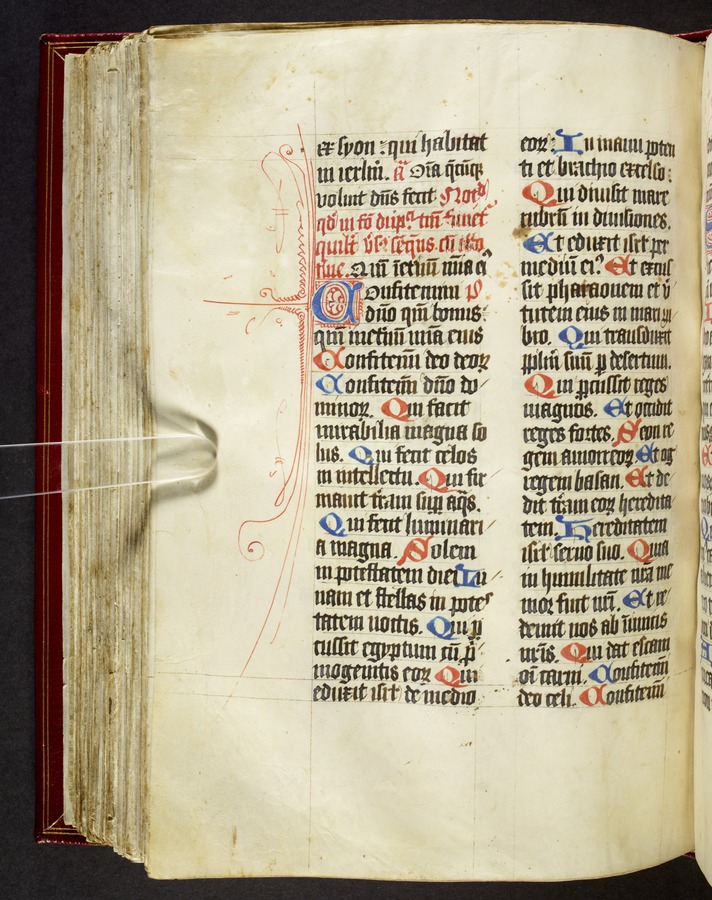 ex syon : qui habitat
in ierlm̄. a᷒ Oīa q̄cūqꝫ
voluit dn̄s fecit
Qm̄ īetnū mīa eiꝰ
Confitemini
dn̄o qm̄ bonus :
qm̄ inetnū mīa eius
Confitem̄ deo deoꝝ
Confitem̄ dn̄o do
minoꝝ. Qui facit
mirabilia magna so
lus. Qui fecit celos
in intellectu. Qui fir
mauit tr̄am sup̄ aq̄s.
Qui fecit luminari
a magna. Solem
in potestatem diei Lu
nam et stellas in potes
tatem noctis. Qui ꝑ
cussit egyptum cū ṗ
mogenitis eoꝝ Qui
eduxit isrl̄ de medio
eoꝝ : In manu poten
ti et brachio excelso :
Qui diuisit mare
rubrū in diuisiones.
Et eduxit isrl̄ per
mediū eiꝰ Et excus
sit pharaonem et v̄
tutem eius in mari ru
bro. Qui transduxit
pplm̄ suū ꝑ desertum.
Qui ꝑcussit reges
magnos. Et occidit
reges fortes. Seon re
gem amorreoꝝ Et og
regem basan. Et de
dit tr̄am eoꝝ heredita
tem. Hereditatem
isrl̄ seruo suo. Quia
in humilitate nr̄a me
mor fuit nr̄i. Et re
demit nos ab īimicis
nr̄is. Qui dat escam
oī carni. Confitem̄
deo celi. Confitem̄